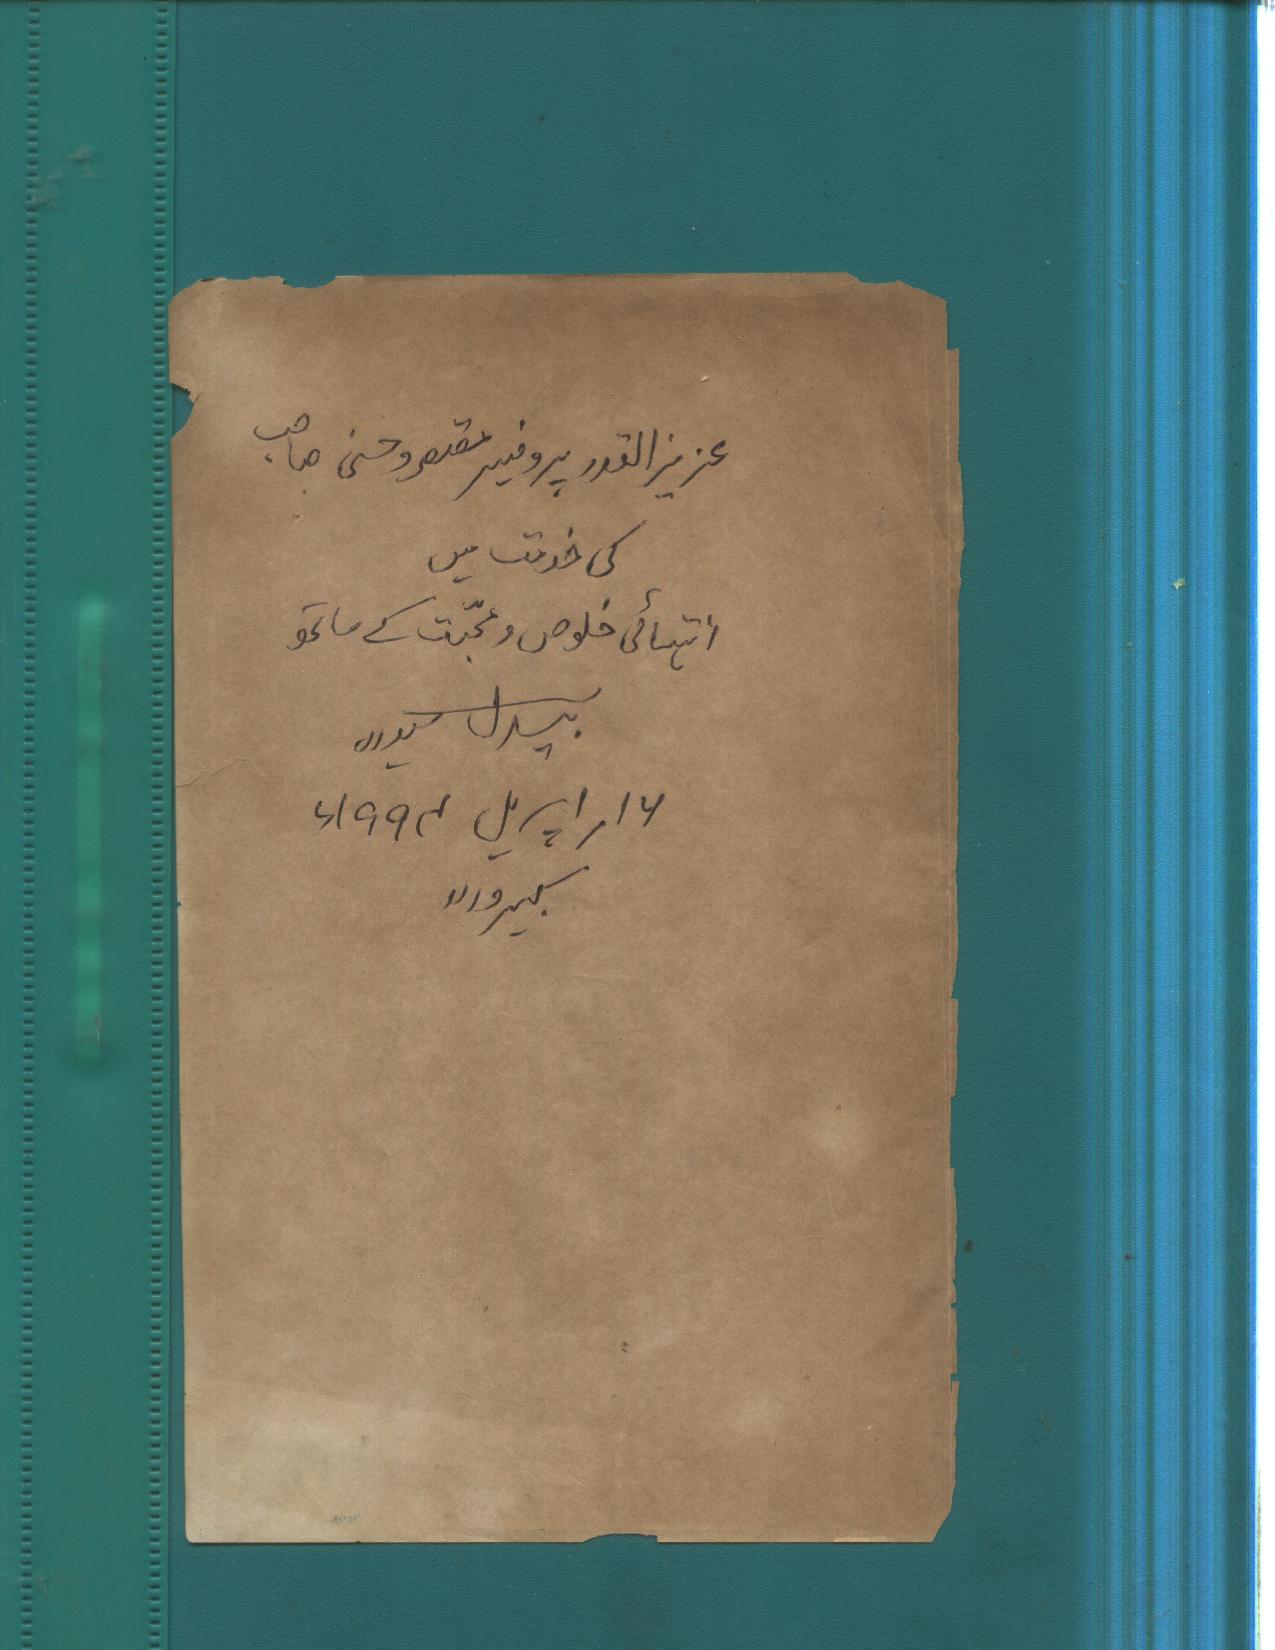 عزیز القدر پروفیسر مقصود حسنی صاحب
کی خدمت میں
انتہائی خلوص و محبّت کے ساتھ
بیدل حیدری
۱۶ اپریل ۱۹۹۴ء
کبیروالا